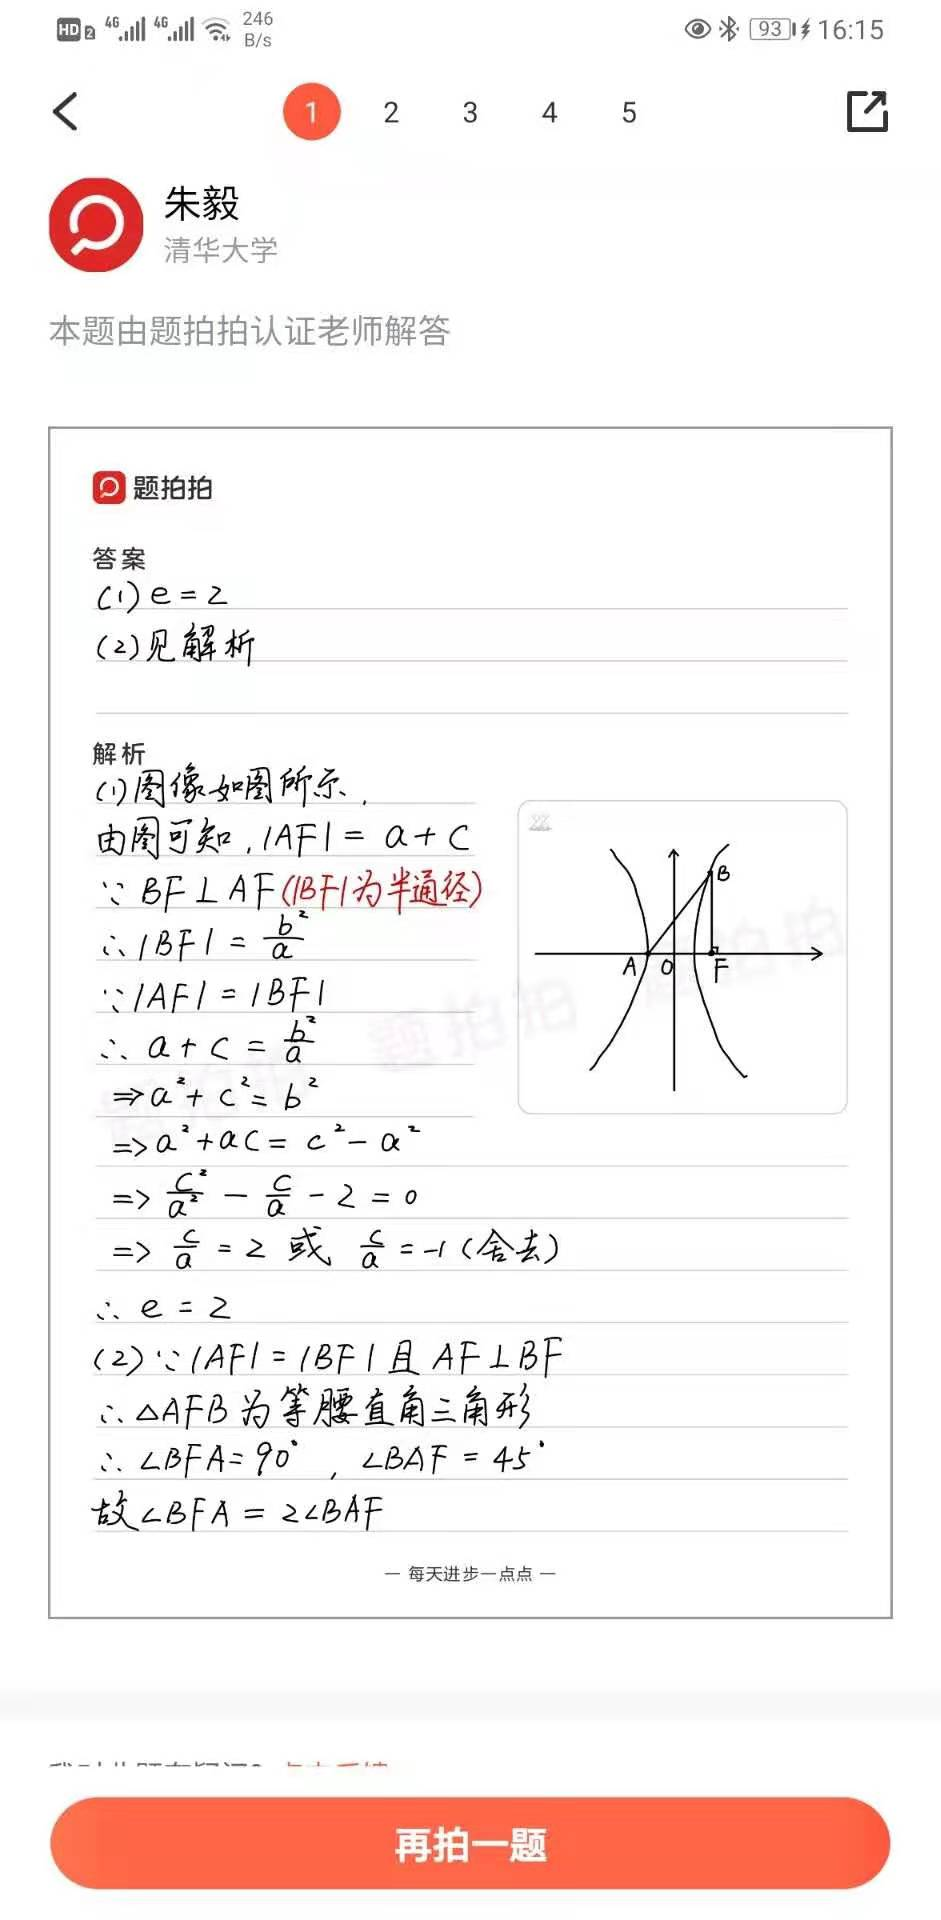 HD 2 4G 4G 246 B/s 93 16:15
1 2 3 4 5
朱毅
清华大学
本题由题拍拍认证老师解答
题拍拍
答案
(1) e = 2
(2) 见解析
解析
(1) 图像如图所示,
由图可知, |AF| = a + c
∵ BF⊥AF (|BF|为半通径)
∴ |BF| = b²/a
∵ |AF| = |BF|
∴ a + c = b²/a
⇒ a² + c² = b²
=> a² + ac = c² - a²
=> c²/a² - c/a - 2 = 0
=> c/a = 2 或 c/a = -1 (舍去)
∴ e = 2
(2) ∵ |AF| = |BF| 且 AF⊥BF
∴ △AFB 为等腰直角三角形
∴ ∠BFA = 90°, ∠BAF = 45°
故∠BFA = 2∠BAF
B
A O F
题拍拍 题拍拍 题拍拍
— 每天进步一点点 —
再拍一题